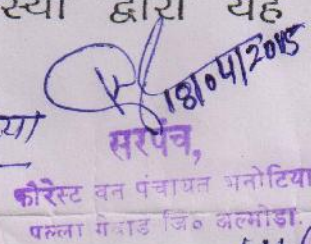 स्था द्वारा यह
18/04/2015
या
सरपंच,
फौरेस्ट वन पंचायत भनोटिया
पल्ला गेवाड जि० अल्मोडा.